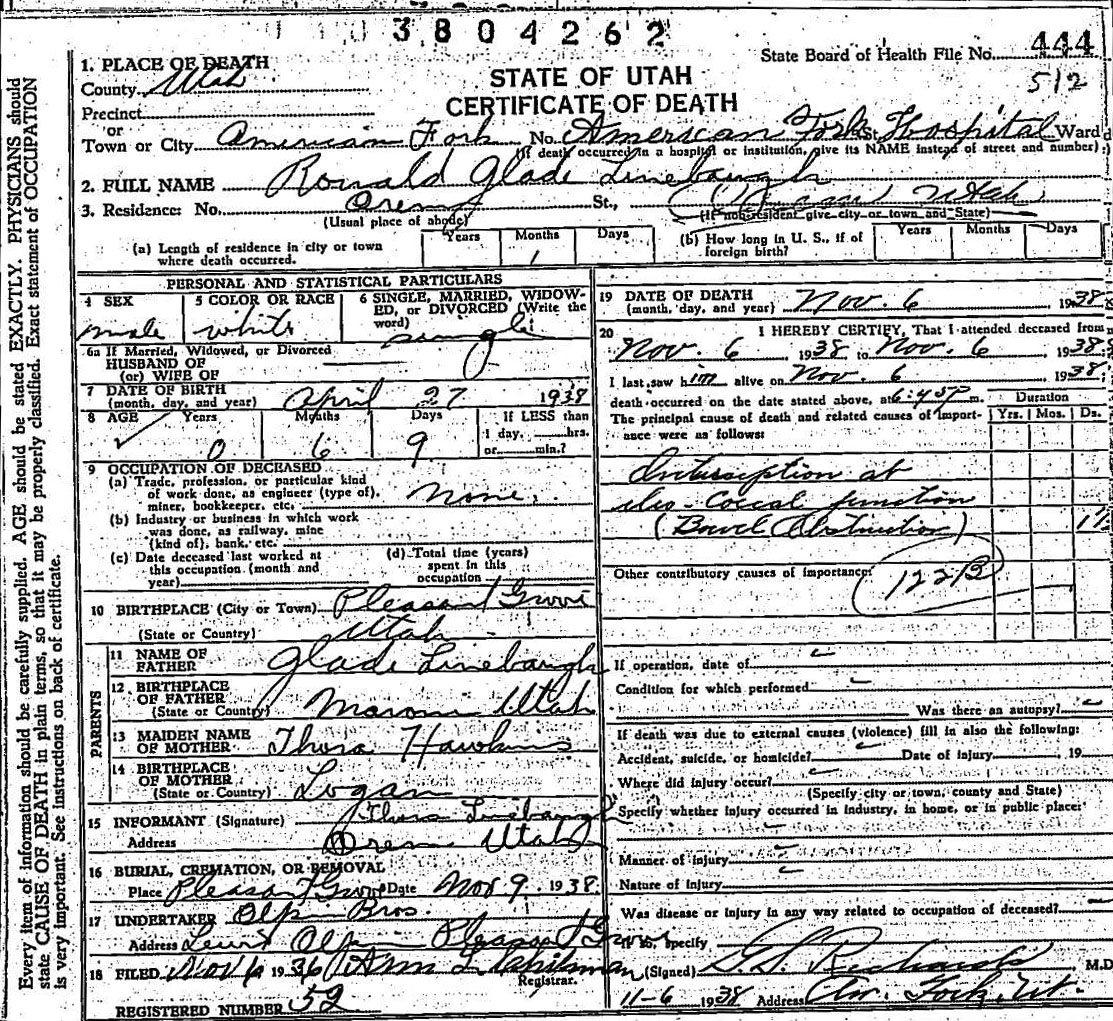 3804262
State Board of Health File No. 444
512
1. PLACE OF DEATH
County Utah
STATE OF UTAH
CERTIFICATE OF DEATH
Precinct
or
Town or City American Fork No. American Fork St. Hospital Ward
(If death occurred in a hospital or institution, give its NAME instead of street and number)
2. FULL NAME Ronald Glade Linebaugh
3. Residence: No. Orem St., Utah
(Usual place of abode) (If non-resident give city or town and State)
(a) Length of residence in city or town where death occurred. Years Months 1 Days (b) How long in U. S., if of foreign birth? Years Months Days
PERSONAL AND STATISTICAL PARTICULARS
4 SEX 5 COLOR OR RACE 6 SINGLE, MARRIED, WIDOWED, or DIVORCED (Write the word)
male white single
6a If Married, Widowed, or Divorced
HUSBAND OF
(or) WIFE OF
7 DATE OF BIRTH
(month, day, and year) April 27 1938
8 AGE Years Months Days If LESS than
0 6 9 1 day, hrs.
or min.?
9 OCCUPATION OF DECEASED
(a) Trade, profession, or particular kind
of work done, as engineer (type of), none.
miner, bookkeeper, etc.
(b) Industry or business in which work
was done, as railway, mine
(kind of), bank, etc.
(c) Date deceased last worked at
this occupation (month and
year)
(d) Total time (years)
spent in this
occupation
10 BIRTHPLACE (City or Town) Pleasant Grove
(State or Country) Utah
PARENTS
11 NAME OF
FATHER Glade Linebaugh
12 BIRTHPLACE
OF FATHER
(State or Country) Moroni Utah
13 MAIDEN NAME
OF MOTHER Thora Hawkins
14 BIRTHPLACE
OF MOTHER
(State or Country) Logan
15 INFORMANT (Signature) Thora Linebaugh
Address Orem Utah
16 BURIAL, CREMATION, OR REMOVAL
Place Pleasant Grove Date Nov 9. 1938.
17 UNDERTAKER Olpin Bros.
Address Olpin Pleasant Grove
18 FILED Nov 1936 Ann L.
Registrar.
REGISTERED NUMBER 52
19 DATE OF DEATH
(month, day, and year) Nov. 6 1938
20 I HEREBY CERTIFY, That I attended deceased from
Nov. 6 1938 to Nov. 6 1938
I last saw him alive on Nov. 6 1938
death occurred on the date stated above, at 6:45 P m.
Duration
The principal cause of death and related causes of importance were as follows: Yrs. Mos. Ds.
Intussception at
ileo-Coecal junction
(Bowel Obstruction)
Other contributory causes of importance:
122B
If operation, date of
Condition for which performed
Was there an autopsy?
If death was due to external causes (violence) fill in also the following:
Accident, suicide, or homicide? Date of injury 19
Where did injury occur?
(Specify city or town, county and State)
Specify whether injury occurred in industry, in home, or in public place:
Manner of injury
Nature of injury
Was disease or injury in any way related to occupation of deceased?
If so, specify
(Signed) G.S. Richards M.D.
11-6 1938 Address Am. Fork, Ut.
Every item of information should be carefully supplied. AGE should be stated EXACTLY. PHYSICIANS should
state CAUSE OF DEATH in plain terms, so that it may be properly classified. Exact statement of OCCUPATION
is very important. See instructions on back of certificate.